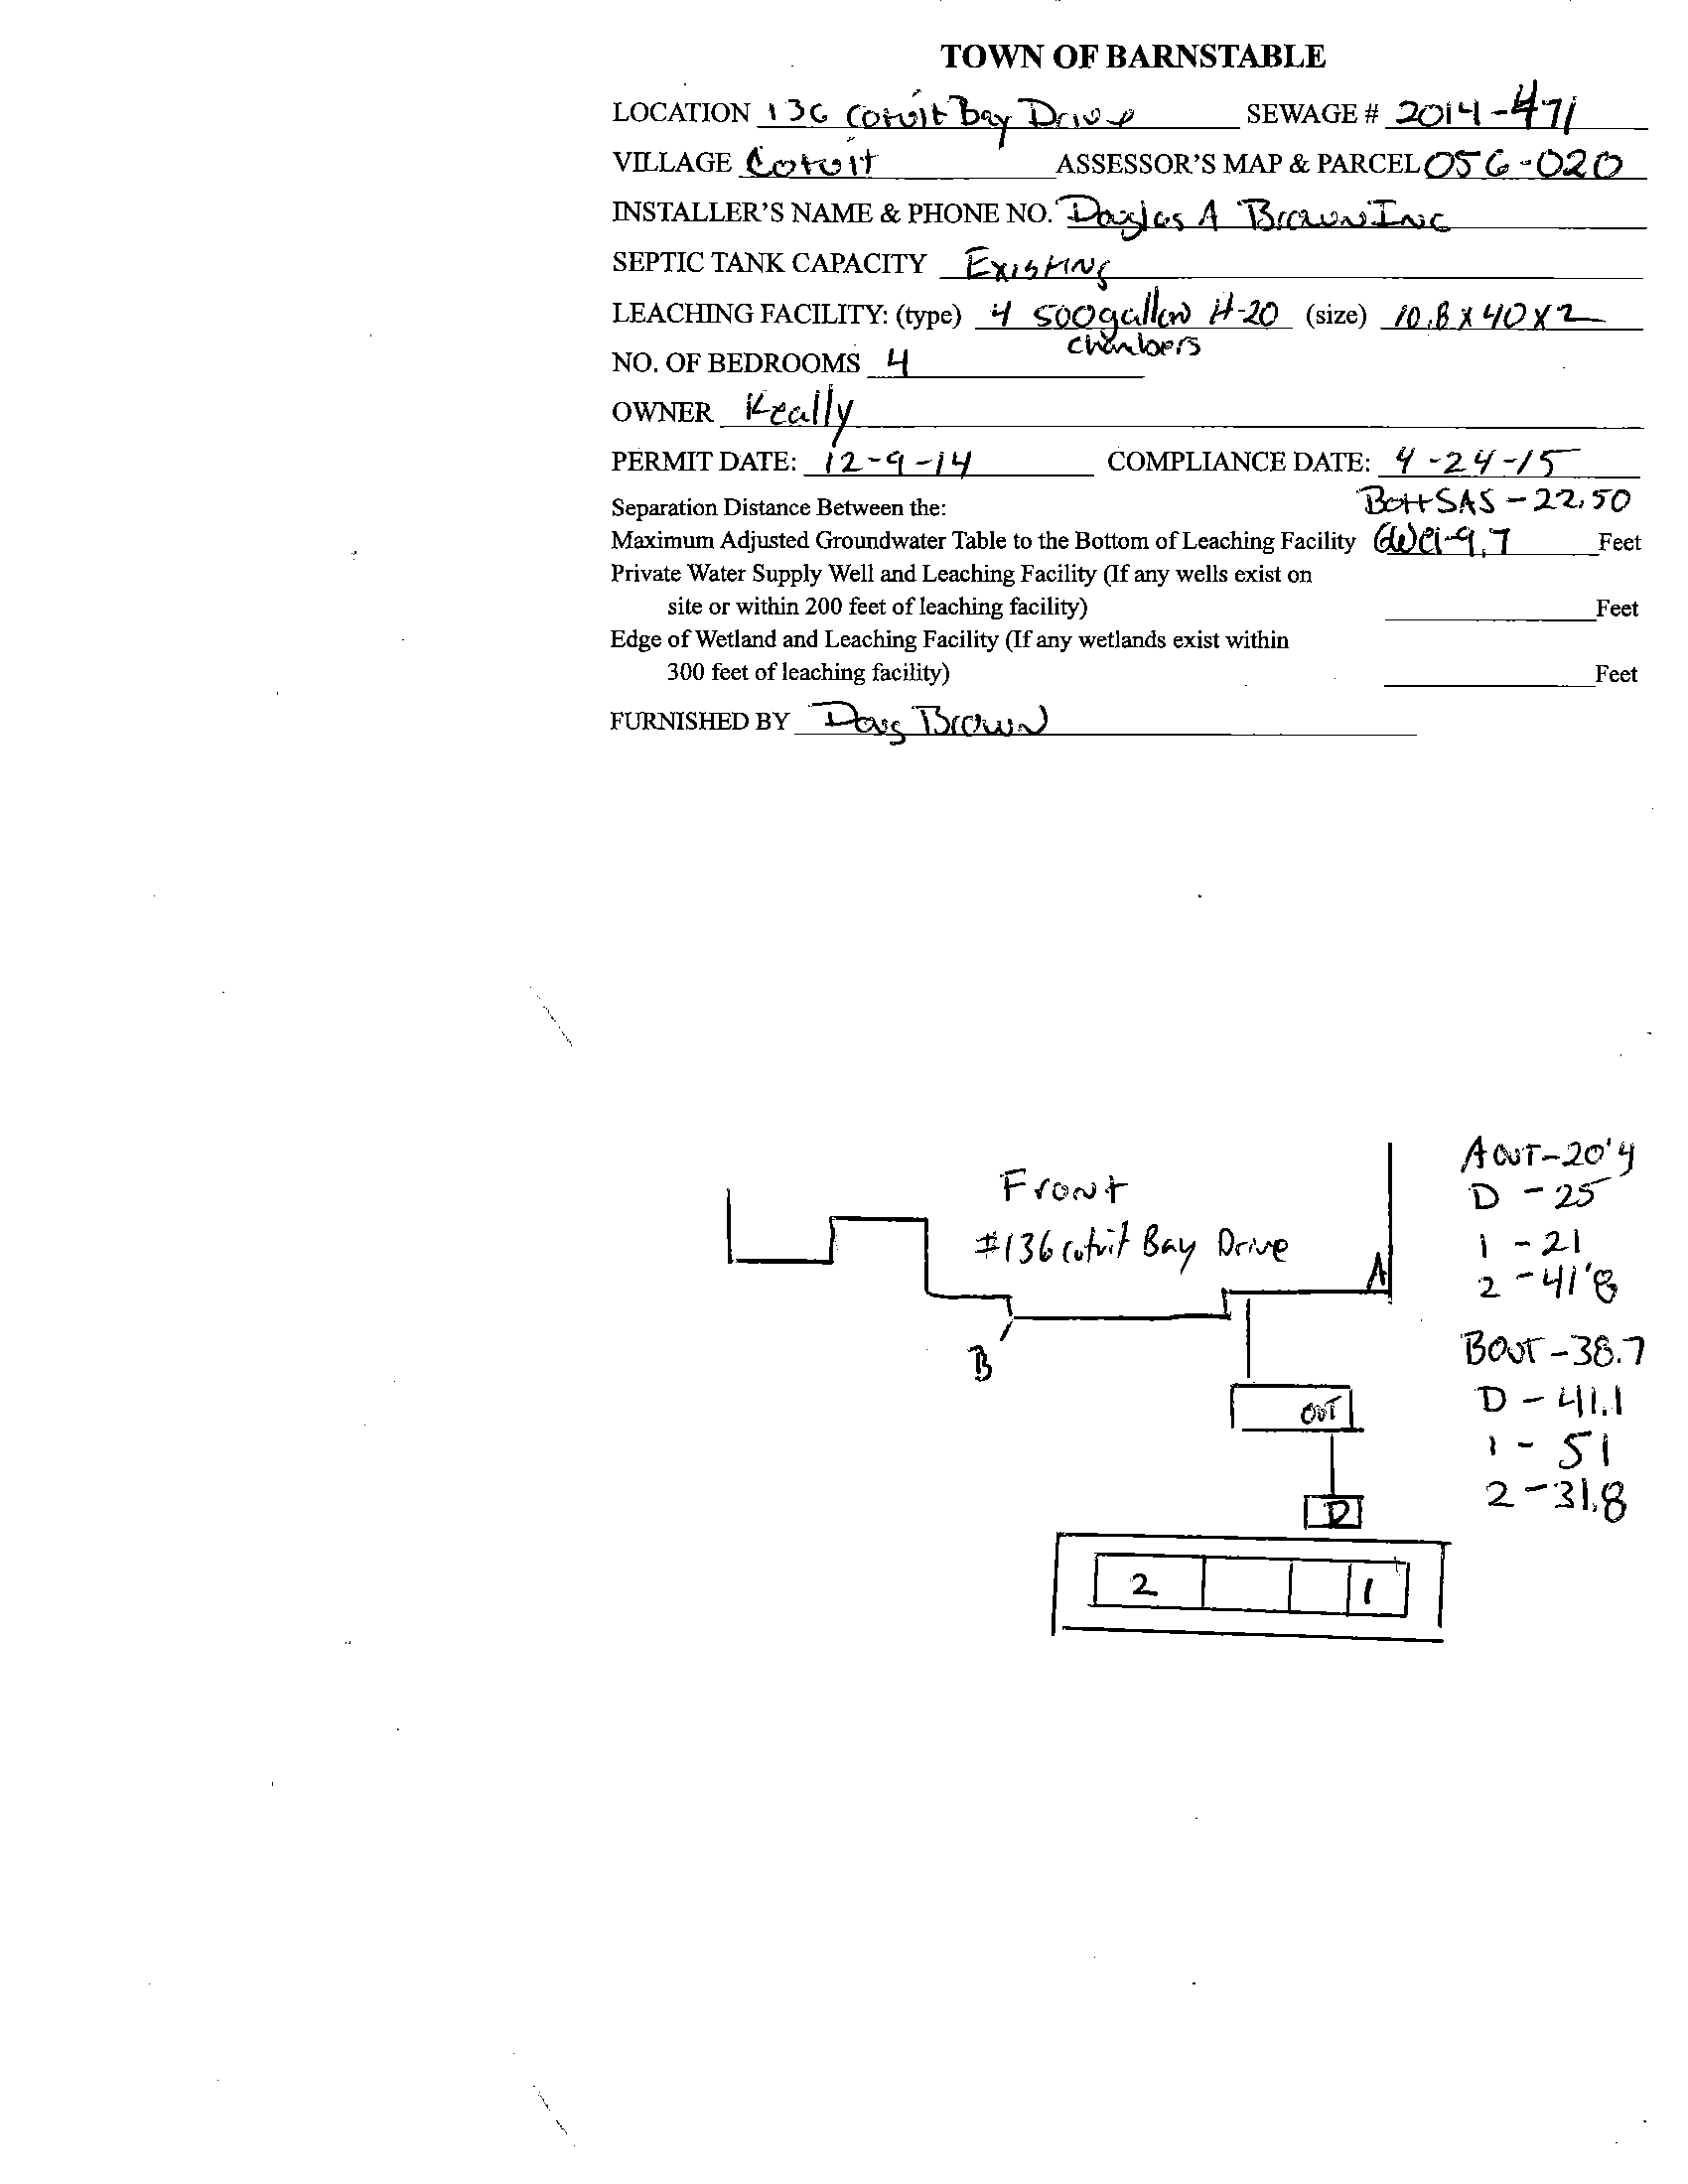 TOWN OF BARNSTABLE
LOCATION 136 Cotuit Bay Drive SEWAGE # 2014-471
VILLAGE Cotuit ASSESSOR'S MAP & PARCEL 056-020
INSTALLER'S NAME & PHONE NO. Douglas A Brown Inc
SEPTIC TANK CAPACITY Existing
LEACHING FACILITY: (type) 4 500 gallon H-20 (size) 10.8 x 40 x 2
chambers
NO. OF BEDROOMS 4
OWNER Keally
PERMIT DATE: 12-9-14 COMPLIANCE DATE: 4-24-15
Separation Distance Between the: Bott SAS - 22.50
Maximum Adjusted Groundwater Table to the Bottom of Leaching Facility 9.7 Feet
Private Water Supply Well and Leaching Facility (If any wells exist on
site or within 200 feet of leaching facility) Feet
Edge of Wetland and Leaching Facility (If any wetlands exist within
300 feet of leaching facility) Feet
FURNISHED BY Doug Brown
Front
#136 Cotuit Bay Drive
A
B
OUT
D
2 1
A OUT-20'4
D - 25
1 - 21
2 - 41'8
B OUT - 38.7
D - 41.1
1 - 51
2 - 31.8